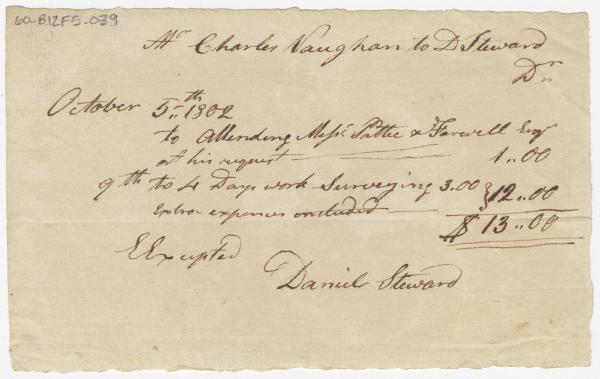 60-B12F5-039
Mr Charles Vaughan to D Steward
Dr
October 5th 1802
to Attending Messrs Pattee & Farwell Esqr
at his request 1..00
9th to 4 Days work Surveying 3.00 } 12..00
Extra expences encluded
$ 13..00
E Excepted
Daniel Steward